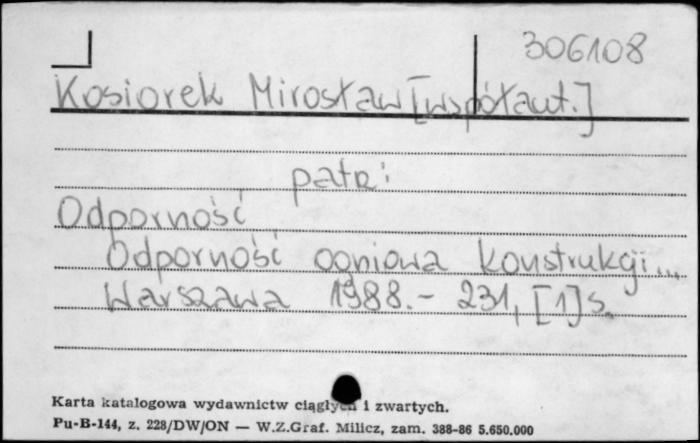 306108
Kosiorek Mirosław [współaut.]
patrz:
Odporność
Odporność ogniowa konstrukcji...
Warszawa 1988.- 231, [1] s.
Karta katalogowa wydawnictw ciągłych i zwartych.
Pu-B-144, z. 228/DW/ON — W.Z.Graf. Milicz, zam. 388-86 5.650.000